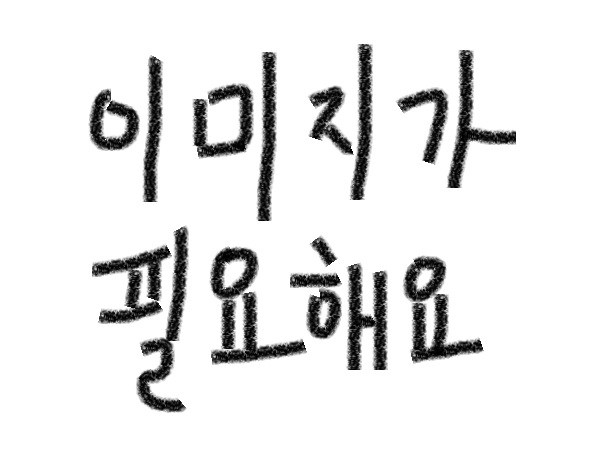 이미지가
필요해요